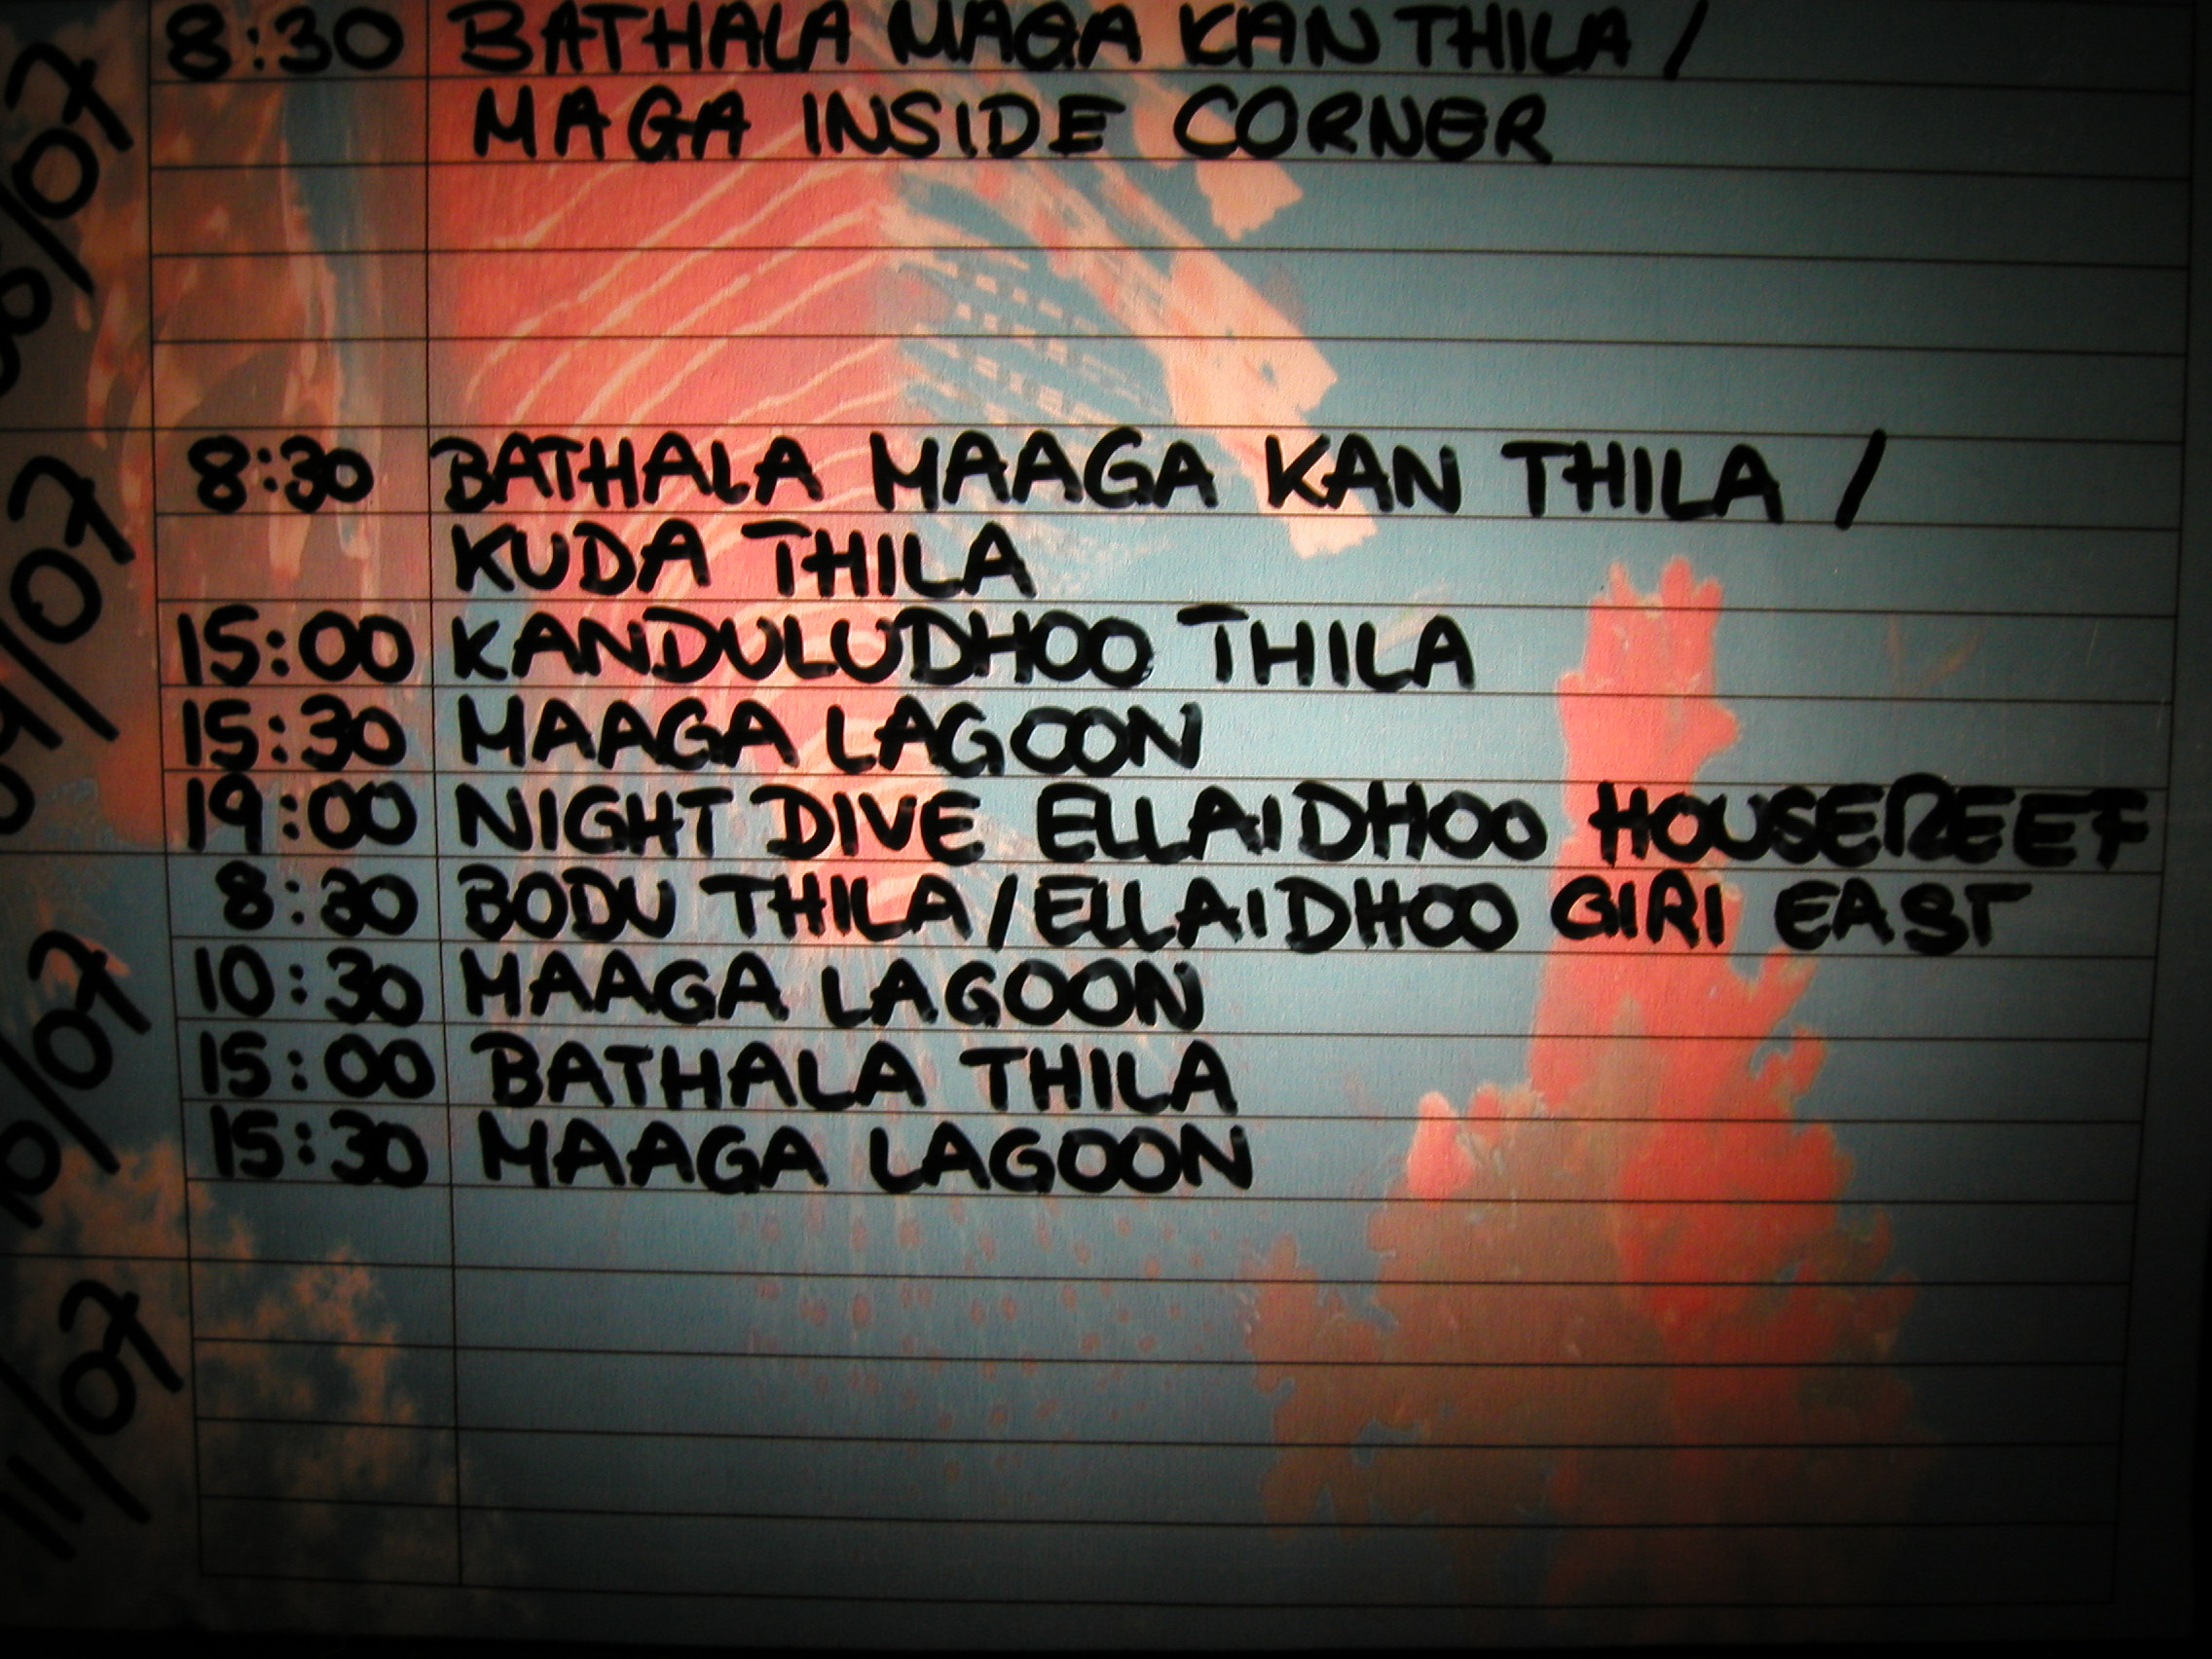 8:30 BATHALA MAGA KAN THILA /
MAGA INSIDE CORNER
/07
8:30 BATHALA MAAGA KAN THILA /
KUDA THILA
15:00 KANDULUDHOO THILA
15:30 MAAGA LAGOON
19:00 NIGHT DIVE ELLAIDHOO HOUSEREEF
09/07
8:30 BODU THILA / ELLAIDHOO GIRI EAST
10:30 MAAGA LAGOON
15:00 BATHALA THILA
15:30 MAAGA LAGOON
10/07
11/07